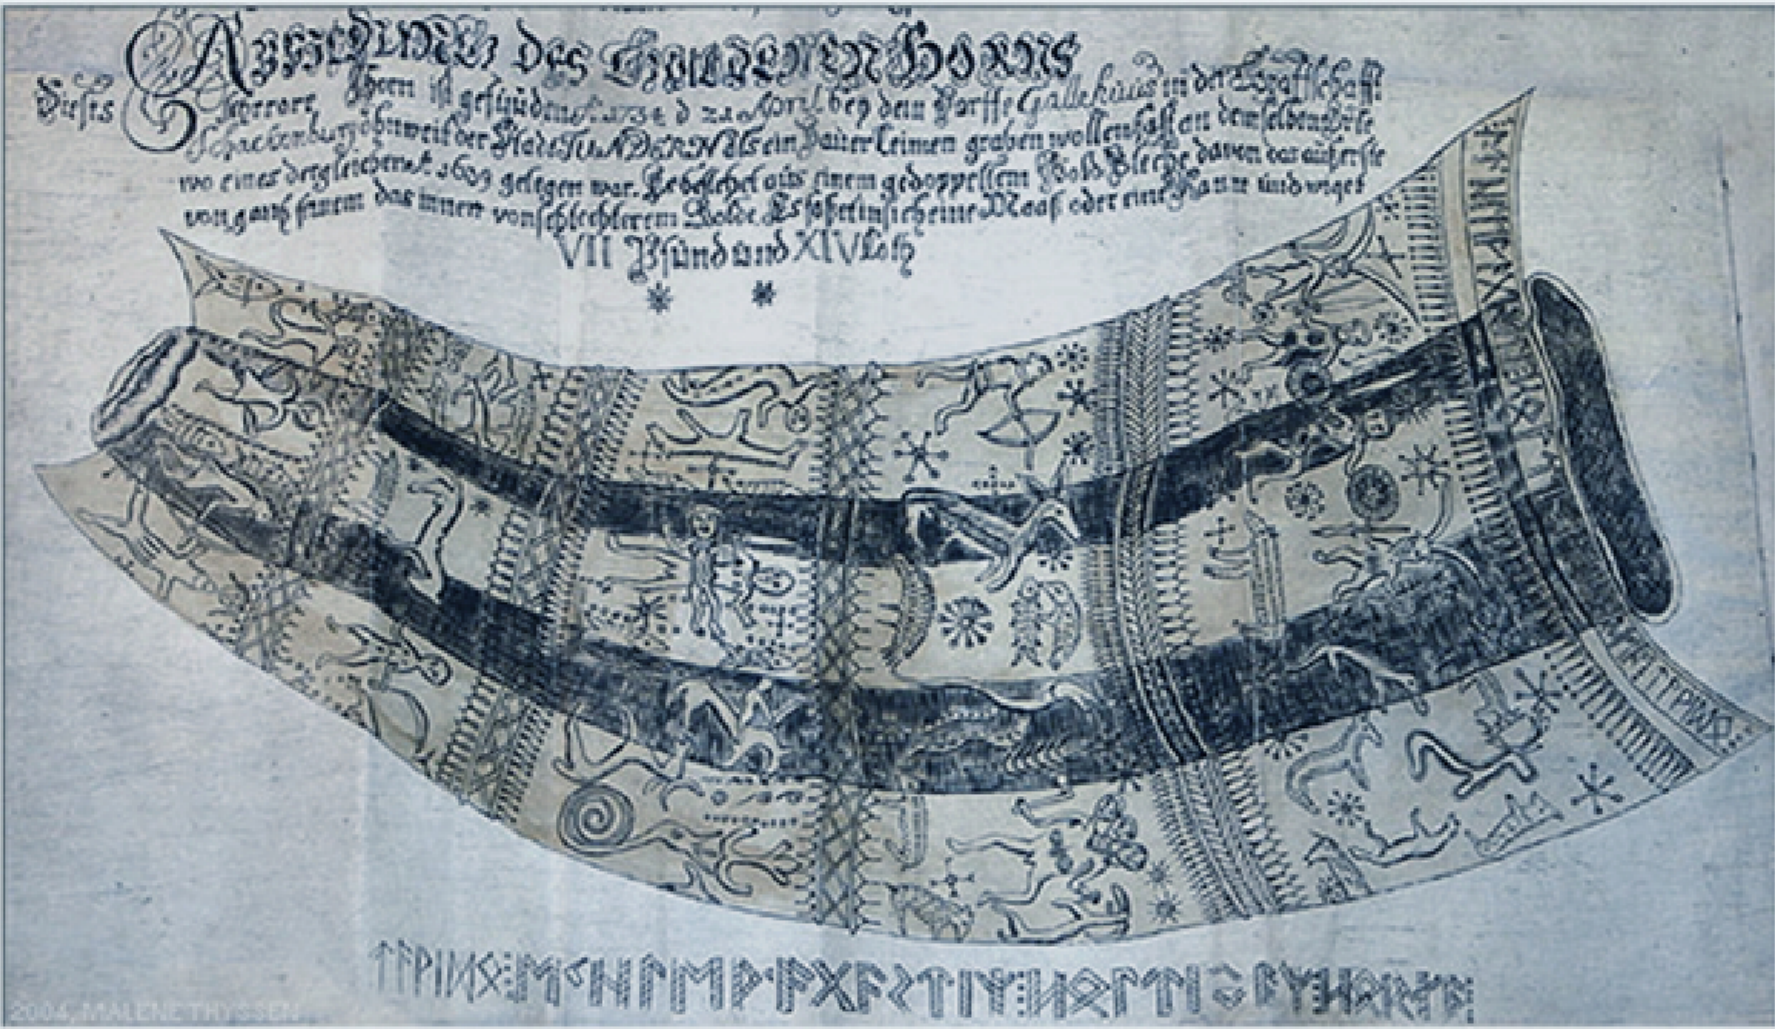 ABBILDUNG des GULDENEN HORNS
Dieses Horn ist gefunden A. 1734 d 21 April bey dem Dorffe Gallehuus in der Graffschafft
Schackenburg ohnweit der Stadt TUNDERN Als ein Bauer Leimen graben wollen fast an demselben Orte
wo eines dergleichen A. 1639 gelegen war. Es bestehet aus einem gedoppeltem Gold Bleche davon das äuserste
von gantz feinem das innere von schlechterem Golde. Es fasset in sich eine Maaß oder eine Kanne und wieget
VII Pfund und XIV Loth
ᛏᚨᚹᛁᛞᛟ᛬ᛖᚲᚺᛚᛖᚹᚨᚷᚨᛊᛏᛁᛉ᛬ᚺᛟᛚᛏᛁᛃᚨᛉ᛬ᚺᛟᚱᚾᚨ᛬
2004, MALENE THYSSEN